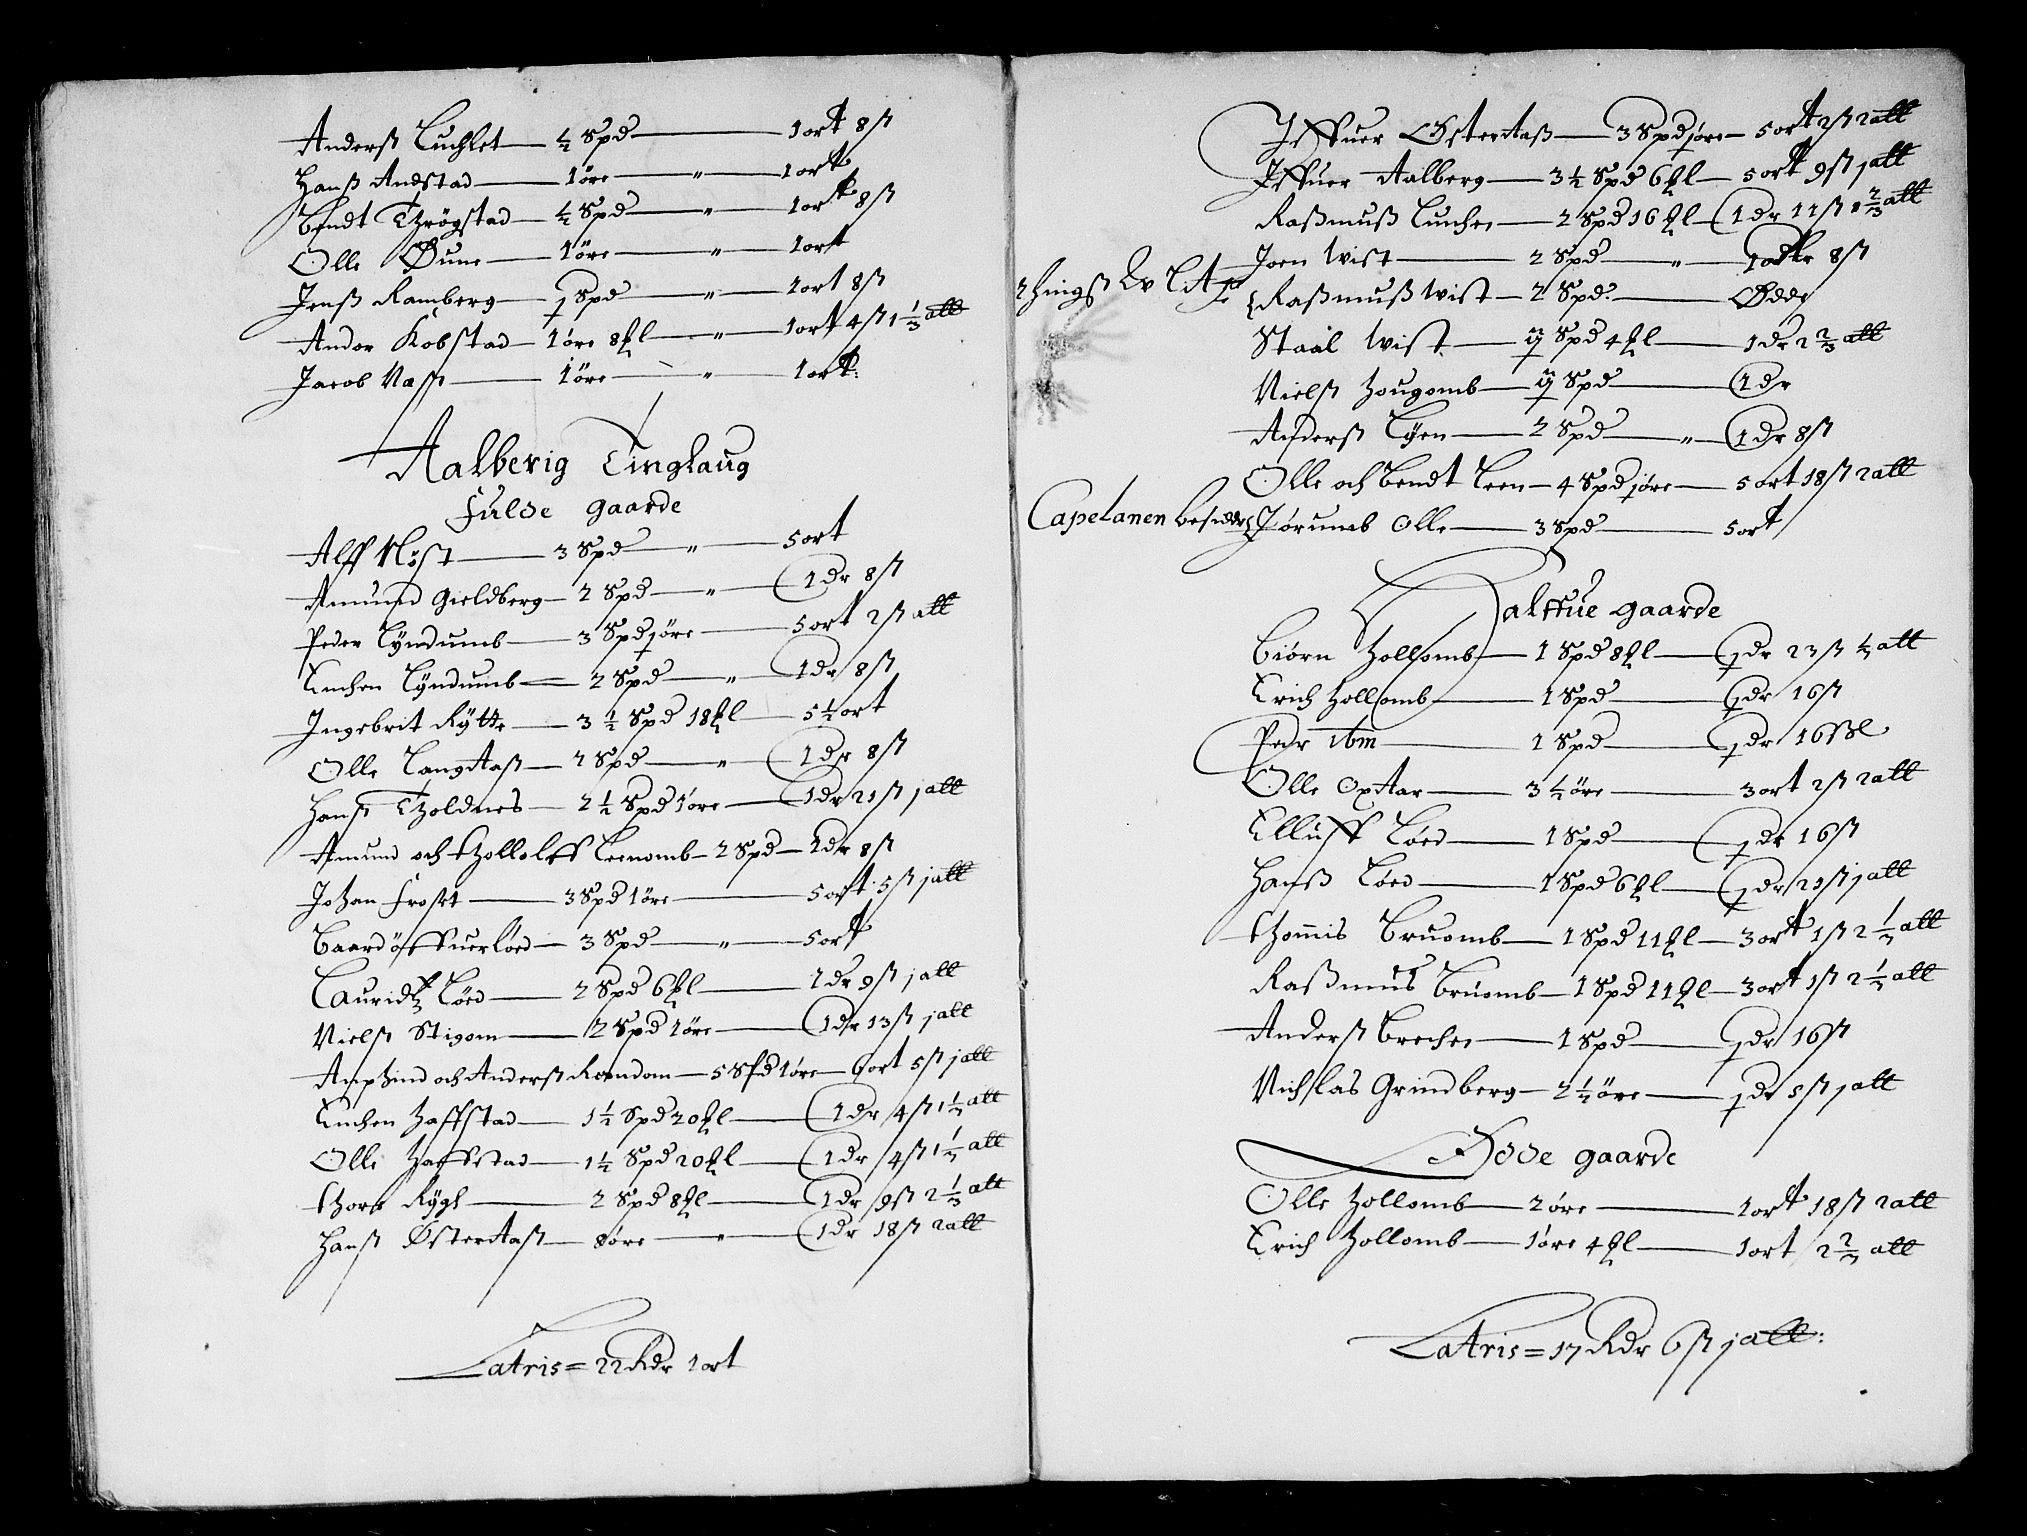 Anderss Luchlet — ½ Spd — 1 ort 8 ss
Hanss Andstad — 1 øre — " — 1 ort
Bendt Thrögstad — ½ Spd — " — 1 ort 8 ss
Olle Øune — 1 øre — " — 1 ort
Jenss Ramberg — ½ Spd — " — 1 ort 8 ss
Andor Kobstad — 1 øre 8 ßl — " — 1 ort 4 ss 1 ⅓ alb
Jacob Nass — 1 øre — " — 1 ort
Aalberig Tinglaug
Fulde gaarde
Alff Røst — 3 Spd — " — 5 ort
Amund Gieldberg — 2 Spd — " — 1 dr 8 ss
Peder Lyndumb — 3 Spd j øre — 5 ort 2 ss alb
Enchen Lyndumb — 2 Spd — " — 1 dr 8 ss
Ingebrit Rytte — 3 ½ Spd 18 ßl — 5 ½ ort
Olle Langaass — 2 Spd — " — 1 dr 8 ss
Hanss Tholdnes — 2 ½ Spd 1 øre — 1 dr 21 ss j alb
Amund och Thollolff Leenomb — 2 Spd — 1 dr 8 ss
Johan Frost — 3 Spd 1 øre — 5 ort 5 ss j alb
Baard öffuerlöed — 3 Spd — " — 5 ort
Lauridtz Löed — 2 Spd 6 ßl — 1 dr 9 ss j alb
Nielss Stigom — 2 Spd 1 øre — 1 dr 13 ss j alb
Amphind och Anderss Romdom — 5 Spd 1 øre — 6 ort 5 ss j alb
Enchen Haffstad — 1 ½ Spd 20 ßl — 1 dr 4 ss 1 ⅓ alb
Olle Haffstad — 1 ½ Spd 20 ßl — 1 dr 4 ss 1 ⅓ alb
Thore Rygh — 2 Spd 8 ßl — 1 dr 9 ss 2 ⅓ alb
Hanss Østeraass — 8 øre — " — 1 dr 18 ss 2 alb
Latris = 22 Rdr 1 ort
Iffuer Østeraass — 3 Spd j øre — 5 ort 2 ss 2 alb
Iffuer Aalberg — 3 ½ Spd 6 ßl — 5 ort 9 ss j alb
Rassmuss Lunchen — 2 Spd 16 ßl — 1 dr 11 ss ⅔ alb
Joen Wist — 2 Spd — " — 1 dr 8 ss
Rassmuss Wist — 2 Spd — Øde
Staal Wist — Spd 4 ßl — 1 dr 2 ⅔ alb
Nielss Hougomb — Spd — 1 dr
Anderss Lyen — 2 Spd — " — 1 dr 8 ss
Olle och Bendt Leen — 4 Spd j øre — 5 ort 18 ss 2 alb
Capelanen besider Jørumb Olle — 3 Spd — 5 ort
Halffue gaarde
Biørn Hollomb — 1 Spd 8 ßl — ½ dr 23 ss ½ alb
Erich Hollomb — 1 Spd — ½ dr 16 ss
Pedr Ibm — 1 Spd — ½ dr 16 ssl
Olle Oxaar — 3 ½ øre — 3 ort 2 ss 2 alb
Elluff Løed — 1 Spd — ½ dr 16 ss
Hanss Løed — 1 Spd 6 ßl — ½ dr 21 ss j alb
Thomis Bruomb — 1 Spd 11 ßl — 3 ort 1 ss 2 ⅓ alb
Rassmus Bruomb — 1 Spd 11 ßl — 3 ort 1 ss 2 ⅓ alb
Anderss Brechen — 1 Spd — ½ dr 16 ss
Nichlas Grindberg — 2 ½ øre — ½ dr 5 ss j alb
Øde gaarde
Olle Hollomb — 2 øre — 1 ort 18 ss 2 alb
Erich Hollomb — 1 øre 4 ßl — 1 ort 2 ⅔ alb
Latris = 17 Rdr 6 ss j alb: